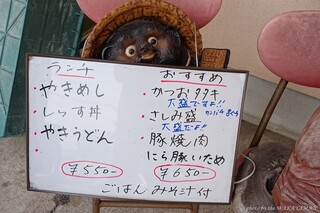 ランチ
・やきめし
・しらす丼
・やきうどん
¥550-
おすすめ
・かつおタタキ
大盛ですよ!!
・さしみ盛
大盛だよ!!
・豚焼肉
にら豚いため
¥650-
ごはん みそ汁付